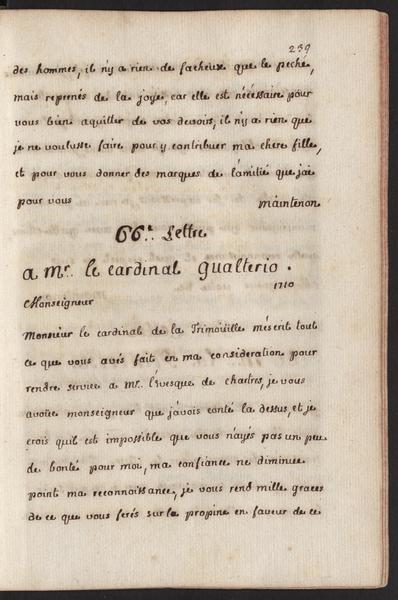 239
des hommes, il n'y a rien de facheux que le peché,
mais reprenés de la joye, car elle est nécéssaire pour
vous bien aquitter de vos devoirs, il n'y a rien que
je ne voulusse faire pour y contribuer ma chere fille,
et pour vous donner des marques de l'amitié que j'ai
pour vous maintenon
66.e Lettre
a Mr. le cardinal gualterio.
1710
Monseigneur
Monsieur le cardinal de la Trimouille m'ésérit tout
ce que vous avés fait en ma consideration pour
rendre service a mr. l'évesque de chartres, je vous
avoüe monseigneur que j'avois conté la dessus, et je
crois qu'il est impossible que vous n'ayés pas un peu
de bonté pour moi, ma confiance ne diminue
point ma reconnoissance, je vous rend mille graces
de ce que vous ferés sur la propine en faveur de ce